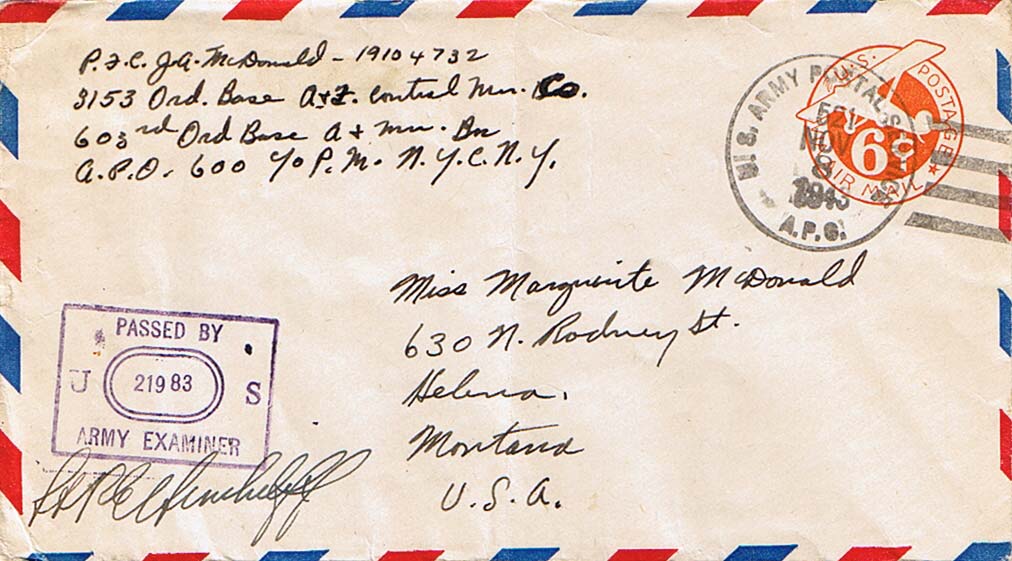 P.F.C. J.A. McDonald - 19104732
3153 Ord. Base A+F. Control Mn. Co.
603rd Ord Base A + Mn. Bn
A.P.O. 600 %P.M. N.Y.C. N.Y.
U.S. ARMY POSTAL
NOV
8
1943
A.P.O.
U.S. POSTAGE
6¢
AIR MAIL
Miss Marguerite McDonald
630 N. Rodney St.
Helena,
Montana
U.S.A.
PASSED BY
U 21983 S
ARMY EXAMINER